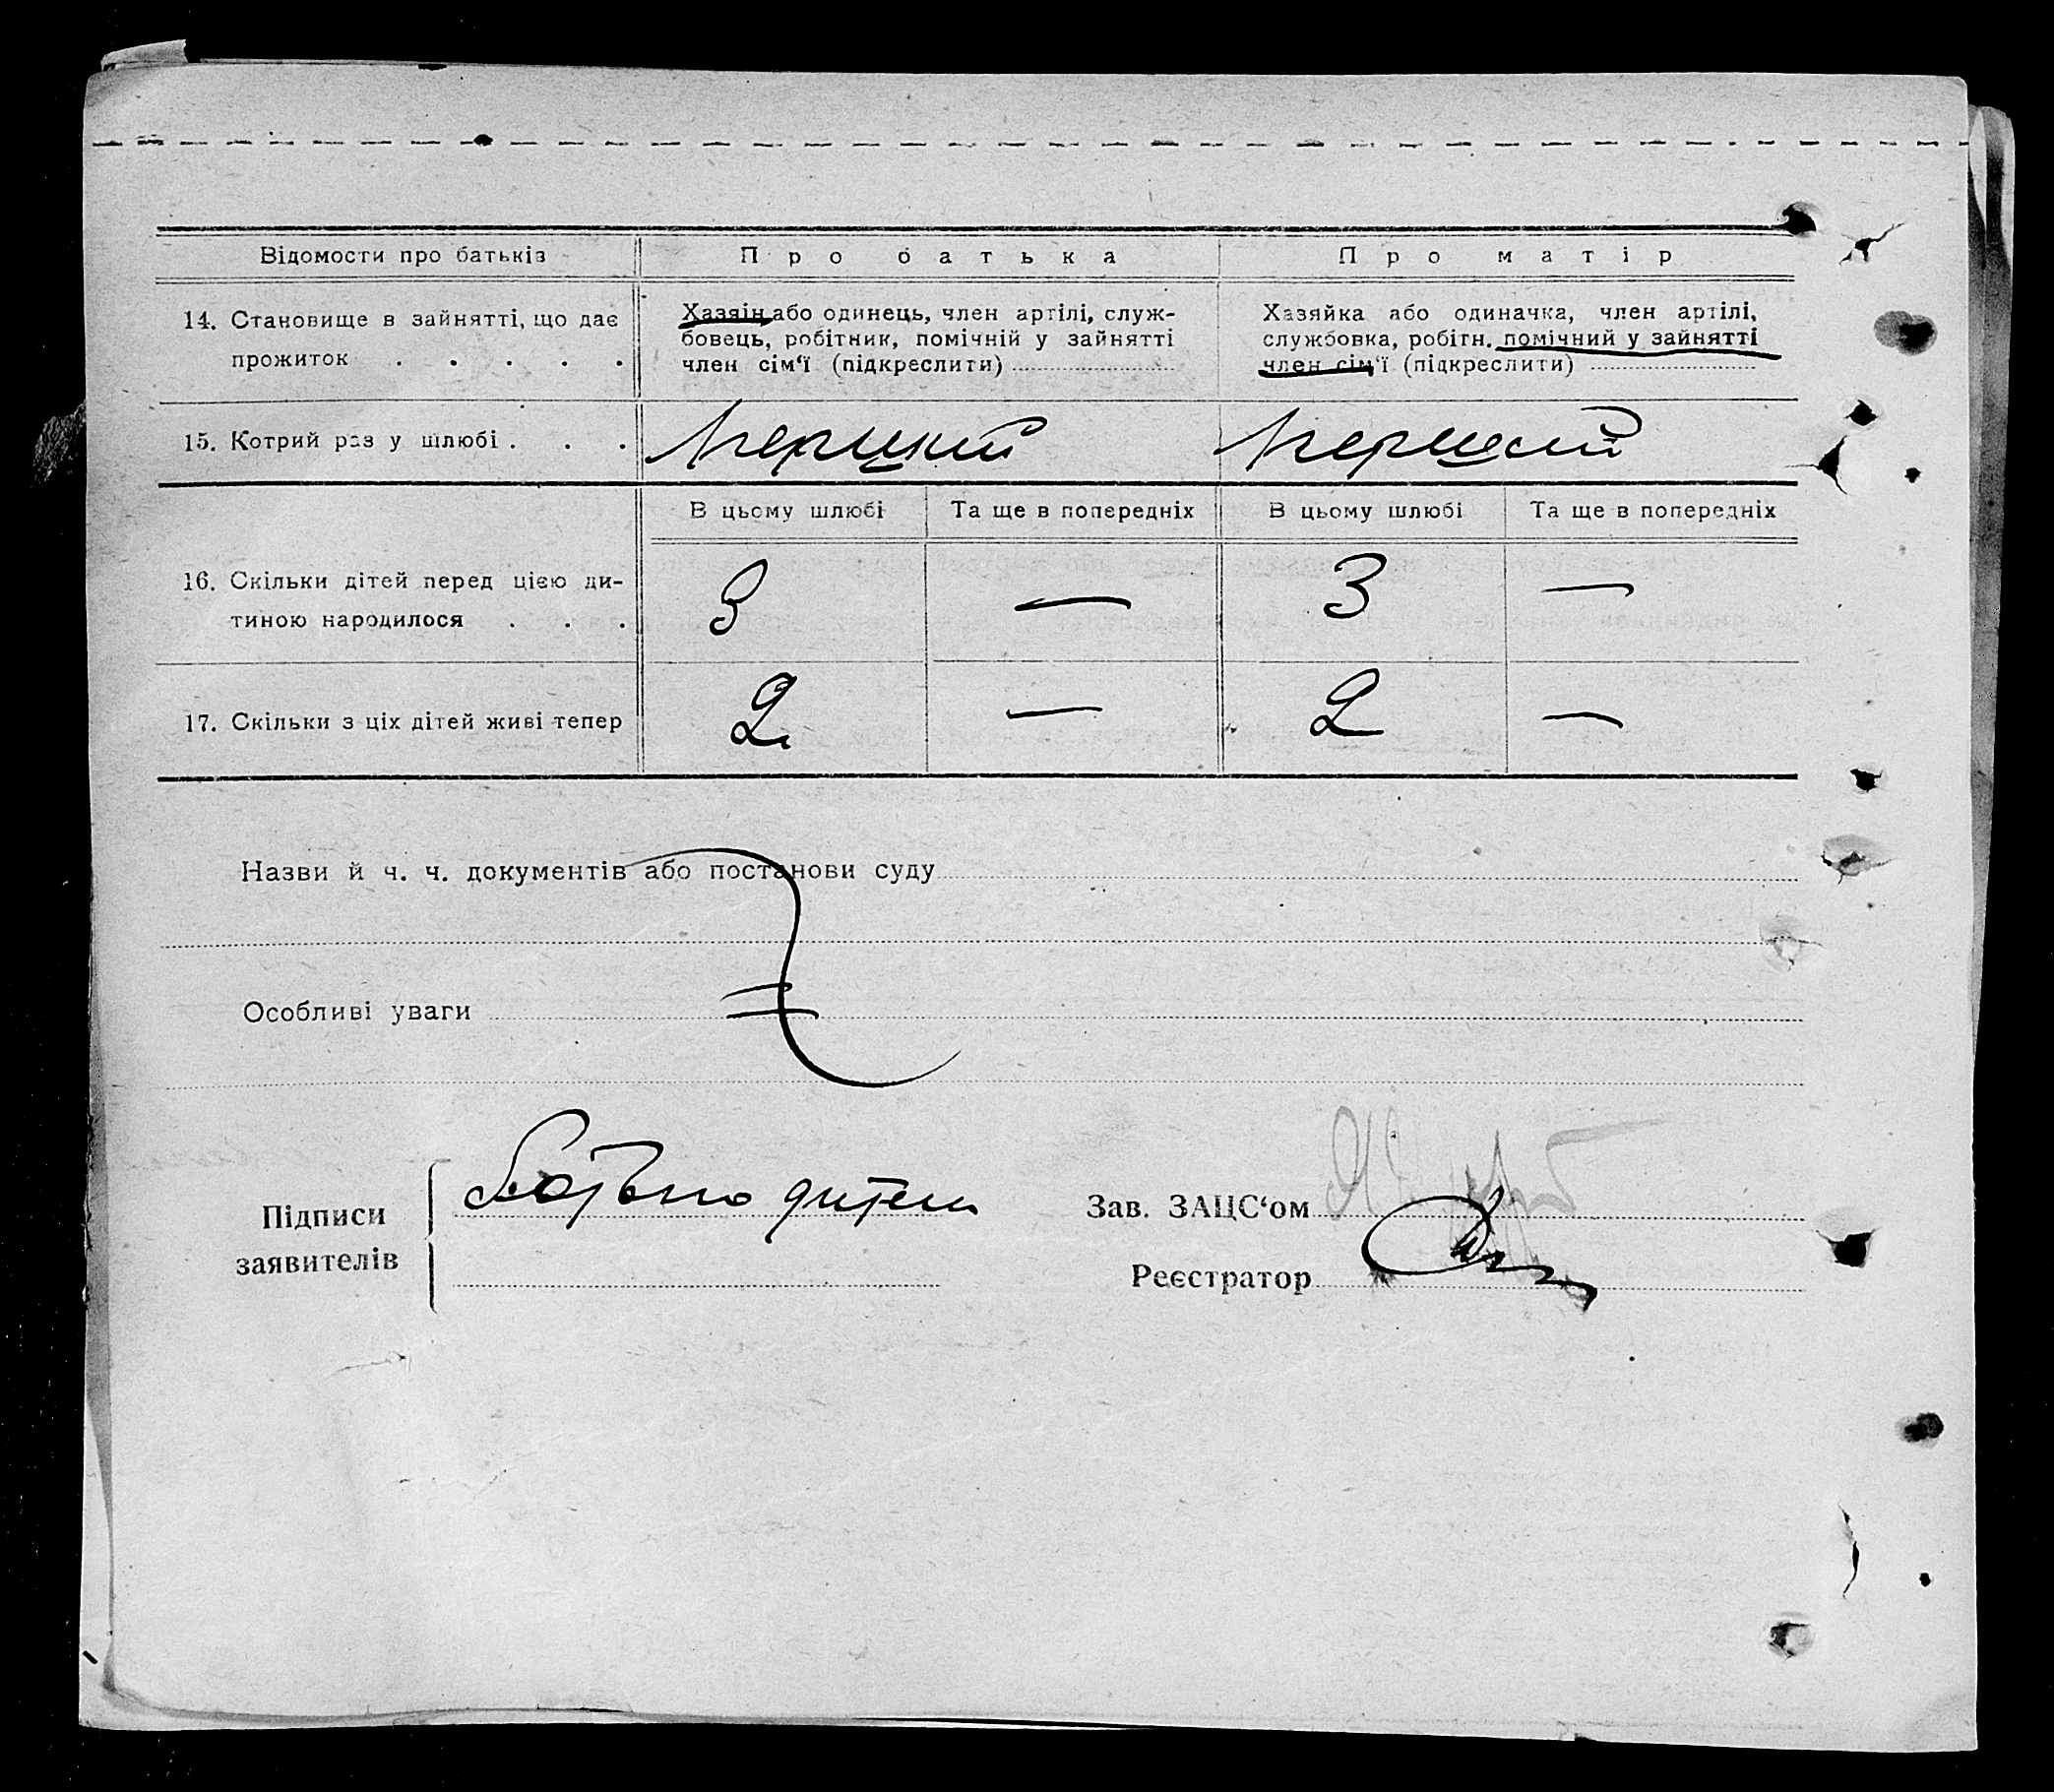 Відомости про батьків
Про батька
Про матір
14. Становище в зайнятті, що дає
прожиток . . . . .
Хазяін або одинець, член артілі, служ-
бовець, робітник, помічній у зайнятті
член сім‘ї (підкреслити)
Хазяйка або одиначка, член артілі,
службовка, робітн. помічний у зайнятті
член сім‘ї (підкреслити)
15. Котрий раз у шлюбі . . .
Перший
Перший
В цьому шлюбі
Та ще в попередніх
В цьому шлюбі
Та ще в попередніх
16. Скільки дітей перед цією ди-
тиною народилося . . .
3 — 3 —
17. Скільки з ціх дітей живі тепер
2 — 2 —
Назви й ч. ч. документів або постанови суду
Особливі уваги
Підписи
заявителів
Батько дитени
Зав. ЗАЦС‘ом
Реєстратор